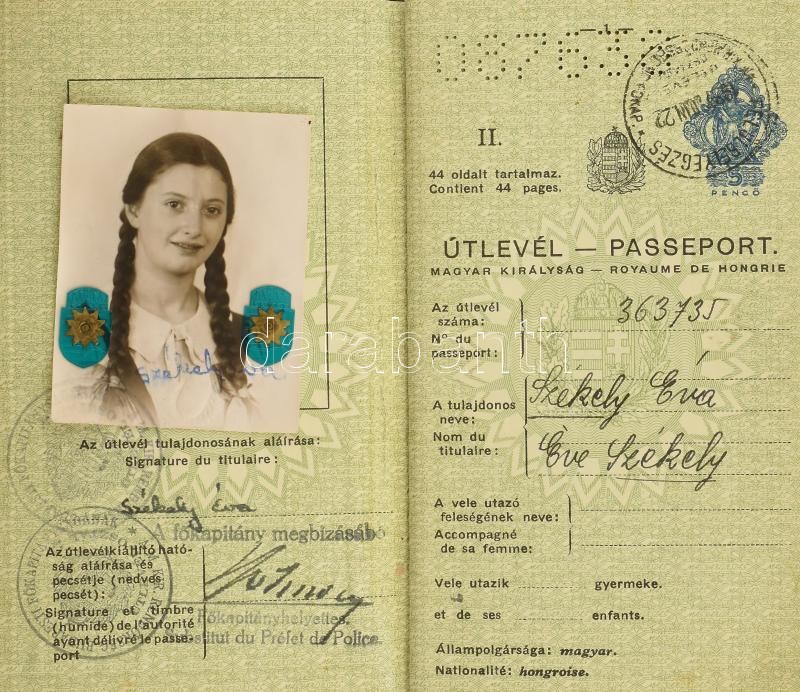 087638
II.
44 oldalt tartalmaz.
Contient 44 pages.
5
PENGŐ
ÚTLEVÉL — PASSEPORT.
MAGYAR KIRÁLYSÁG — ROYAUME DE HONGRIE
Az útlevél
száma:
Nº du
passeport:
363735
A tulajdonos
neve:
Nom du
titulaire:
Székely Éva
Ève Székely
A vele utazó
feleségének neve:
Accompagné
de sa femme:
Vele utazik gyermeke.
et de ses enfants.
Állampolgársága: magyar.
Nationalité: hongroise.
Székely Éva
Az útlevél tulajdonosának aláírása:
Signature du titulaire:
Székely Éva
A főkapitány megbízásából
Az útlevélkiállító ható-
ság aláírása és
pecsétje (nedves
pecsét):
Signature et timbre
(humide) de l'autorité
ayant délivré le passe-
port
Főkapitányhelyettes.
Substitut du Préfet de Police.
darabanth